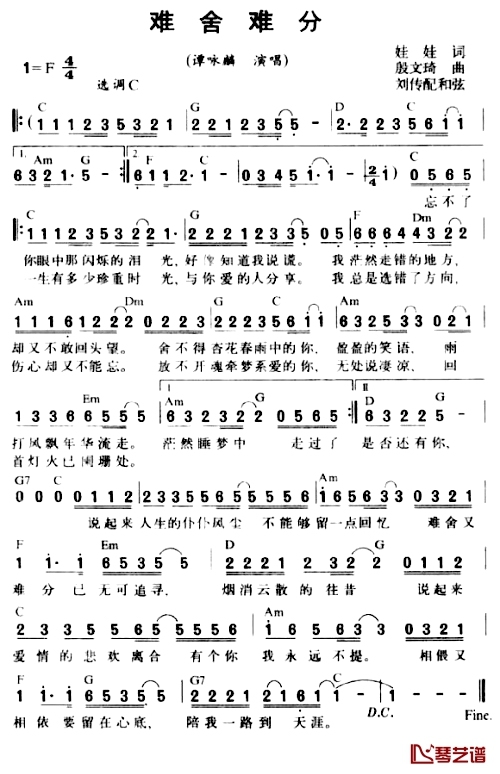 难舍难分
1=F 4/4
(谭咏麟 演唱)
娃娃 词
殷文琦 曲
刘传配和弦
选调C
C G D C
‖:(1 1 1 2 3 5 3 2 1 | 2 2 1 2 3 5·5 - | 2· 2 3 5 6 1 1 |
1. Am G 2. F C C
6 3 2 1·5 - :‖ 6 1 1·1 - | 2/4 1·1) 0 5 6 5 |
忘不了
C G F Dm
‖: 1 1 1 2 3 5 3 2 1 | 2 2 2 1 2 3 5 5 0 5 | 6 6 6 6 4 4 3 2 |
你眼中那闪烁的泪光,好像知道我说谎。我茫然走错的地方,
一生有多少珍重时光,与你爱的人分享。我总是选错了方向,
Am Dm G Am
1 1 1 6 1 2 2 2 0 2 2 3 | 2 2 2 3 5 6 1 1 | 6 3 2 3 2 0 2 |
却又不敢回头望。舍不得杏花春雨中的你,盈盈的笑语,雨
伤心却又不能忘。放不开魂牵梦系爱的你,无处说凄凉,回
Em 1 Am II Am
1 3 3 6 6 5 5 5 | 6 3 2 3 2 2 0 5 6 5 :‖ 6 3 2 2 1 2 |
打风飘年华流走。茫然睡梦中 走过了 是否还有你,
首灯火已阑珊处。
G7 C Am
0 0 0 0 1 1 2 | 2 3 3 5 5 6 5 5 5 | 1 6 5 6 3 3 0 2 1 2 |
说起来 人生的仆仆风尘 不能够留一点回忆 难舍又
F Em D G
1 1· 1 6 5 3 5 5 | 2 2 2 1 2 3 5 5 5 |
难分已无可追寻, 烟消云散的往昔 说起来
C Am
2 3 3 2 3 5 5 5 5 6 | 1 6 5 6 3 3 0 2 1 2 |
爱情的悲欢离合 有个你 我永远不提。 相偎又
F G D G7 C
1 1· 1 6 5 6 5 5 | 2 2 2 1 5 2 1 | 1 - - 1 ‖ 1 - - - ‖
相依要留在心底, 陪我一路到天涯。
D.C. Fine.
琴艺谱